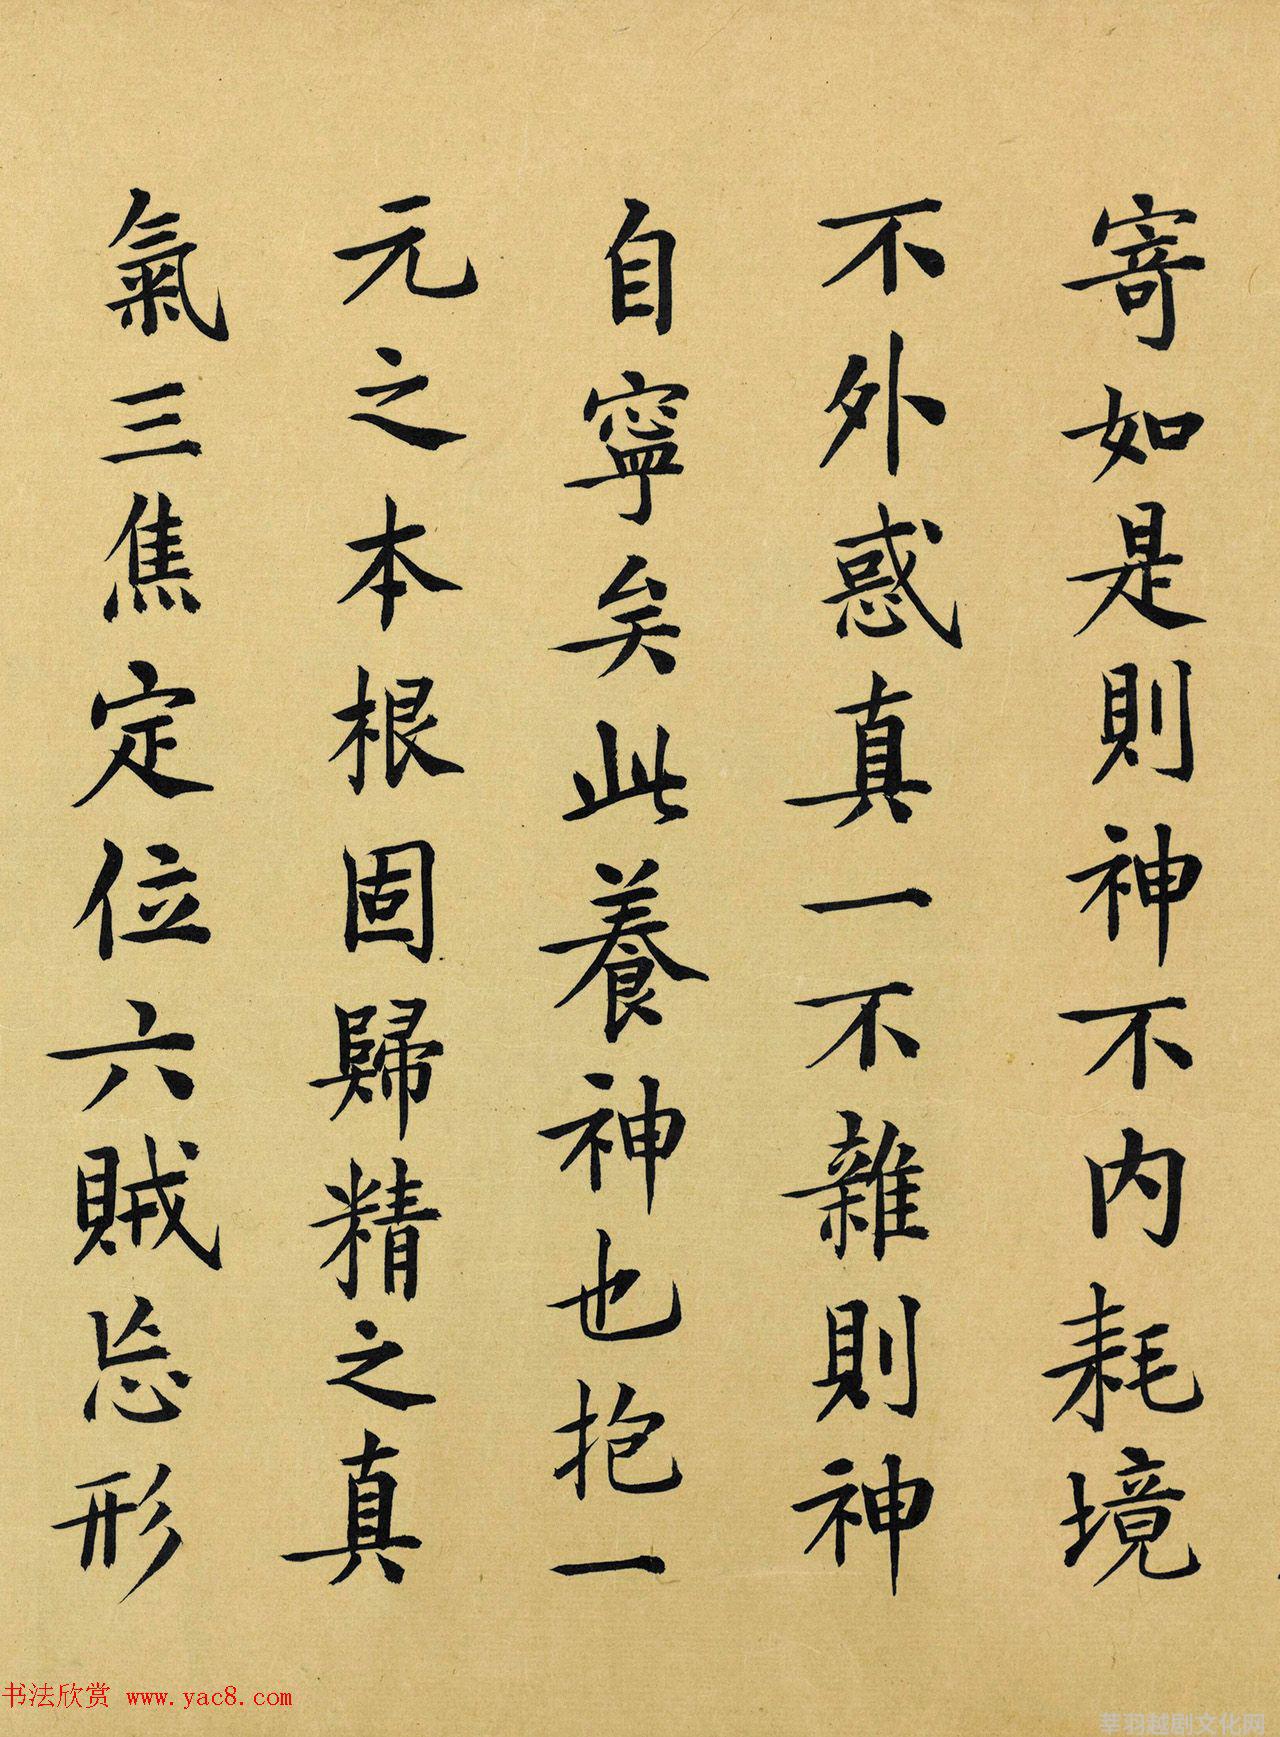 寄如是則神不内耗境
不外惑真一不雜則神
自寧矣此養神也抱一
元之本根固歸精之真
氣三焦定位六賊忘形
书法欣赏 www.yac8.com
莘羽越剧文化网